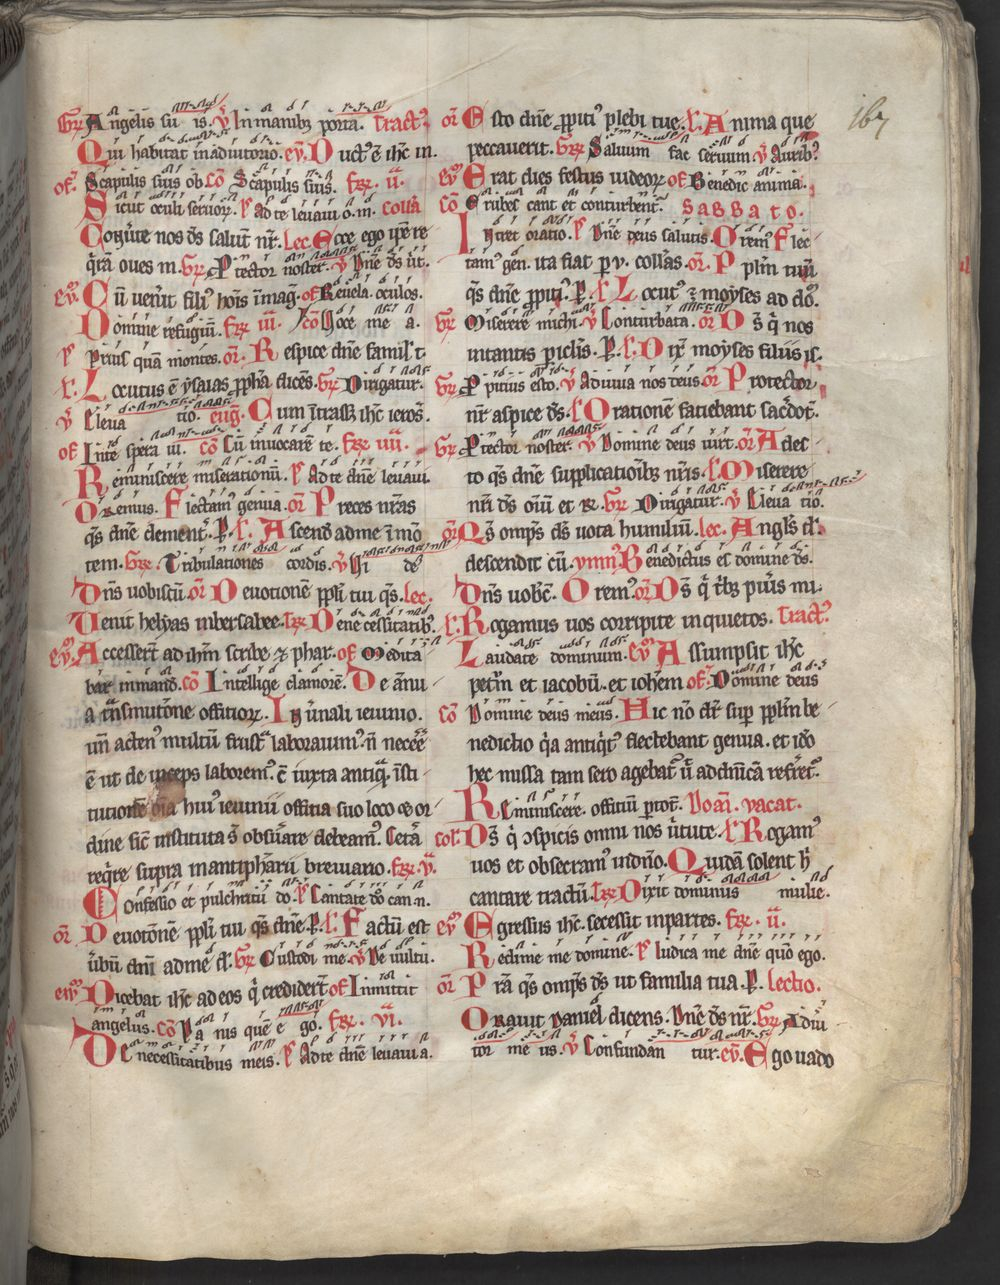 Gr̃ Angelis su is. v̾ In manibꝫ porta. Tractꝰ
Qui habitat in adiutorio. ev̾. Ductꝰ ẽ ihc in
of̾. Scapulis suis ob. Cõ Scapulis suis. fer̃. ii.
Sicut oculi seruoꝝ. p̾ Ad te leuaui o. m. collã
Conũte nos d̃s salut̃ nr̃. Lec. Ecce ego ip̃e re
q̃rã oues m. Gr̃ Ptector noster. v̾ Dñe d̃s ũt.
ev̾. Cũ uen̾it fili' hoĩs ĩ mag̃. of Reuela. oculos.
Domine refugiũ. fer̃ iii. cõ Uoce me a.
p̃ Priusquã montes. or̃. Respice dñe famil' t.
l'. Locutus ẽ ysaias ꝓph̃a dicẽs. Gr̃ Dirigatur.
v̾ Eleua tio. eug̃. Cum ĩtrass̃ ihc ierosꝰ.
of In te spera ui. cõ Cũ inuocarẽ te. fer̃ iiii.
Reminiscere miserationũ. p̾ Ad te dñe leuaui.
Oremus. Flectamꝰ genua. or̃ Preces nr̃as
q̃s dñe clementꝰ. P. l'. Ascende ad me ĩ mõ
tem. Gr̃. Tribulationes cordis. v̾ Ui de
Dñs uobiscũ. or̃ Deuotionẽ pp̃li tui q̃s. lec.
Uenit helyas in bersabee. Gr̃ De necessitatibꝰ.
ev̾. Accesserũt ad ihm̃ scribe ⁊ phar. of Medita
bar̃ in mand̃. cõ Intellige clamorẽ. De ãnu
a trãsmutõne officioꝝ. In ũnali ieiunio.
un̾ actenꝰ multũ frustr̃ laborauimꝰ. ñ neceẽ
ẽ ut de inceps laboremꝰ. ẽ iuxta antiq̃ ĩsti
tutionẽ oĩa huiꝰ ieiunii officia suo loco ⁊ or
dine sic̃ instituta s̃ obsũare debeamꝰ. Cetã
req̃re supra in antiphãrii breuiario. fer̃. v.
Confessio et pulchritu do. p̾ Cantate dõ can. n.
or̃ Deuotõnẽ pp̃li tui q̃s dñe. P. l'. Factũ est
ũbũ dñi ad me d̃. Gr̃ Custodi me. v̾ De uultu.
ew̾ Dicebat ihc ad eos q̃ credidert̃ of Inmittit
angelus. Cõ Pa nis quẽ e go. fer̃. vi.
De necessitatibus meis. p̾ Ad te dñe leuaui a.
or̃ Esto dñe ꝓpiti' plebi tue. l'. Anima que
peccauerit. Gr̃ Saluum fac seruum v̾ Auribꝰ
ev̾ Erat dies festus iudeoꝝ of Benedic anima.
cõ Erubes cant et conturbentꝰ. SABBATO.
Intret oratio. p̾ Dñe deus salutis. Oremꝰ Flec
tamꝰ gen. ita fiat p v. collãs. or̃. Pplm̃ tuũ
q̃s dñe ꝓpitiꝰ. P. l' Locutꝰ ẽ moyses ad dõ.
Gr̃ Miserere michi. v̾ Conturbata. or̃ D̃s q̃ nos
in tantis piclis̃. P. l'. Dix̃ moyses filiis is̃.
Gr̃ Ppitius esto. v̾ Adiuua nos deus or̃ Protector
nr̃ aspice d̃s. l' Orationẽ faciebant sac̃dot̃.
Gr̃ Ptector noster. v̾ Domine deus uirt. or̃ Ades
to q̃s dñe supplicatioĩbꝫ nr̃is. l' Miserere
nr̃i d̃s oĩũ et r̃. Gr̃ Dirigatur. v̾ Eleua tio.
or̃ Q̃s omp̃s d̃s uota humiliũ. lec. Angls̃ d̃.
descendit cũ. ymnꝰ Benedictus es domine d̃s.
Dñs uobc̃. Oremꝰ. or̃ D̃s q̃ tͥbꝫ puis̃ mi.
l'. Rogamus uos corripite inquietos. Tractꝰ
Laudate dominum. ev̾ Assumpsit ihc
petrũ et iacobũ. et iohẽm of̾. Domine deus
cõ Domine deus meus. Hic nõ dr̃ sup pplm̃ be
nedictio q̃a antiq̃tꝰ flectebant genua. et idõ
hec missa tam sero agebatꝰ ũ ad dñicã referretꝰ.
Reminiscere. officiũ p̃ot. Doãi. vacat.
col'. D̃s q̃ ɔspicis omni nos ũtute. l' Rogamꝰ
uos et obsecramꝰ in dñõ. Quidã solent h̾
cantare tractũ. Gr̃ Dixit dominus mulie.
ev̾ Egressus ihc. secessit in partes. fer̃. ii.
Redime me domine. p̾ Iudica me dñe quõ ego.
or̃ Prã q̃s omp̃s d̃s ut familia tua. P. lectio.
Orauit Daniel dicens. Dñe d̃s nr̃. Gr̃ Adiu
tor me us. v̾ Confundan tur. ev̾. Ego uado